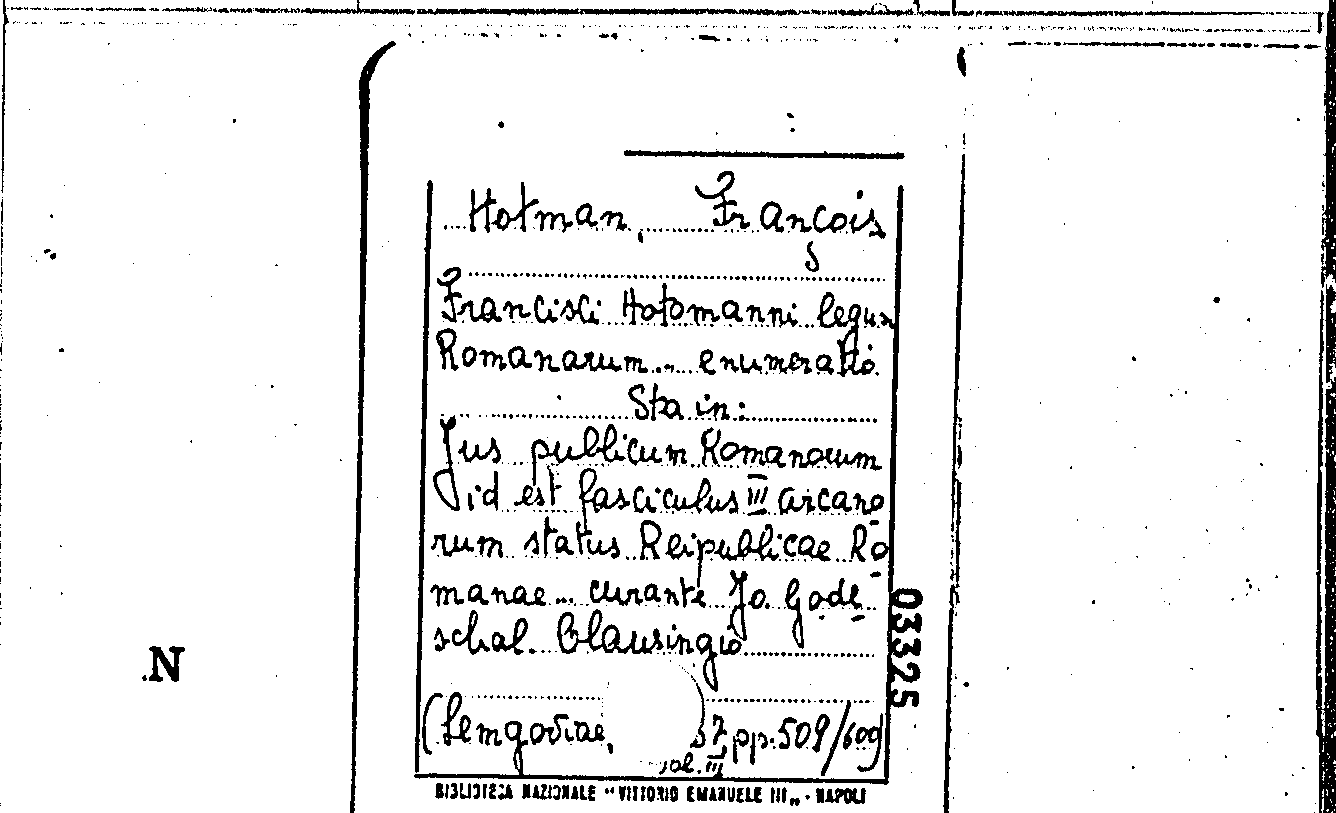 Hotman, François
Francisci Hotomanni legum
Romanarum... enumeratio
Sta in:
Jus publicum Romanorum
id est fasciculus III arcano
rum status Reipublicae Ro
manae... curante Jo. Gode
schal. Clausingio
(Lemgoviae, 37, pp. 509/609
vol. III
BIBLIOTECA NAZIONALE "VITTORIO EMANUELE III„ - NAPOLI
03325
N